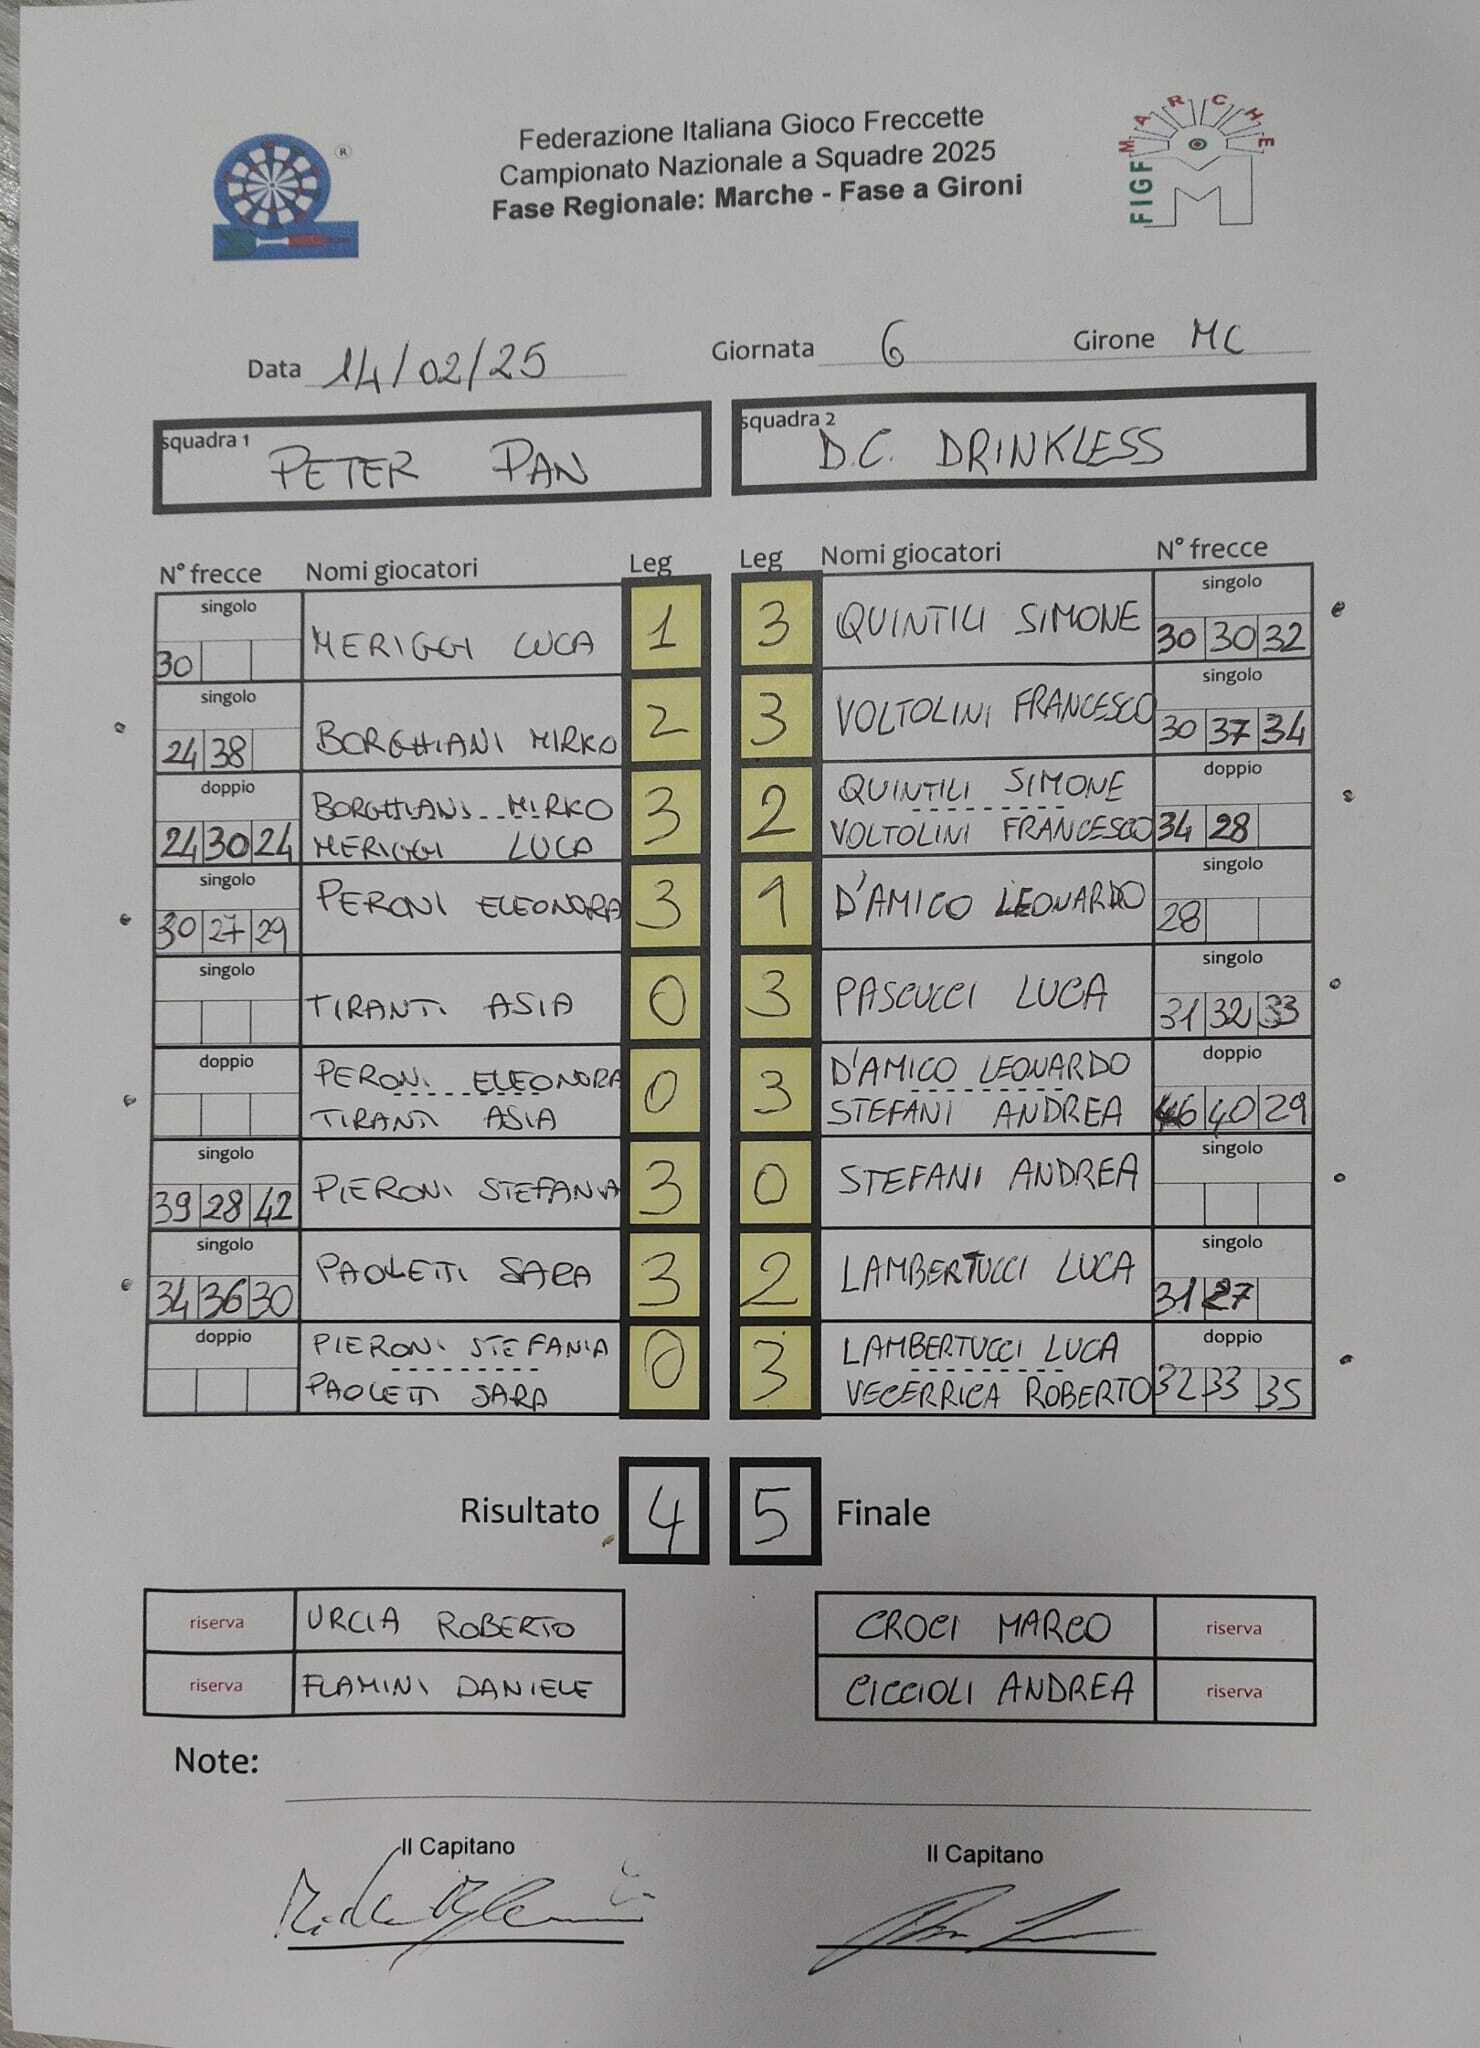 Federazione Italiana Gioco Freccette
Campionato Nazionale a Squadre 2025
Fase Regionale: Marche - Fase a Gironi
®
MARCHE
FIGF
M
Data 14/02/25 Giornata 6 Girone MC
squadra 1 PETER PAN
squadra 2 D.C. DRINKLESS
N° frecce Nomi giocatori Leg Leg Nomi giocatori N° frecce
singolo singolo
30 MERIGGI LUCA 1 3 QUINTILI SIMONE 30 30 32
singolo singolo
24 38 BORGHIANI MIRKO 2 3 VOLTOLINI FRANCESCO 30 37 34
doppio doppio
BORGHIANI MIRKO QUINTILI SIMONE
24 30 24 MERIGGI LUCA 3 2 VOLTOLINI FRANCESCO 34 28
singolo singolo
30 27 29 PERONI ELEONORA 3 1 D'AMICO LEONARDO 28
singolo singolo
TIRANTI ASIA 0 3 PASCUCCI LUCA 31 32 33
doppio doppio
PERONI ELEONORA D'AMICO LEONARDO
TIRANTI ASIA 0 3 STEFANI ANDREA 46 40 29
singolo singolo
39 28 42 PIERONI STEFANIA 3 0 STEFANI ANDREA
singolo singolo
34 36 30 PAOLETTI SARA 3 2 LAMBERTUCCI LUCA 31 27
doppio doppio
PIERONI STEFANIA LAMBERTUCCI LUCA
PAOLETTI SARA 0 3 VECERRICA ROBERTO 32 33 35
Risultato 4 5 Finale
riserva URCIA ROBERTO CROCI MARCO riserva
riserva FLAMINI DANIELE CICCIOLI ANDREA riserva
Note:
Il Capitano Il Capitano